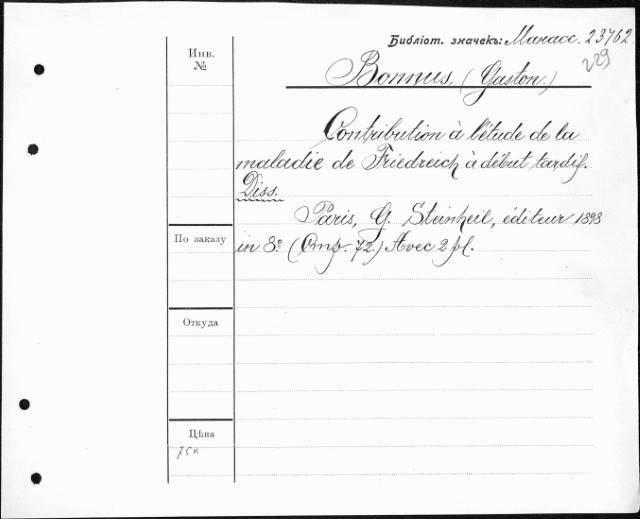 Библіот. значекъ: Манасс. 23762
229
Инв.
№
Bonnus. (Gaston.)
Contribution à l'étude de la
maladie de Friedreich à début tardif.
Diss.
Paris, G. Steinheil, éditeur 1898
По заказу
in 8º (Стр. 72.) Avec 2 pl.
Откуда
Цѣна
75к